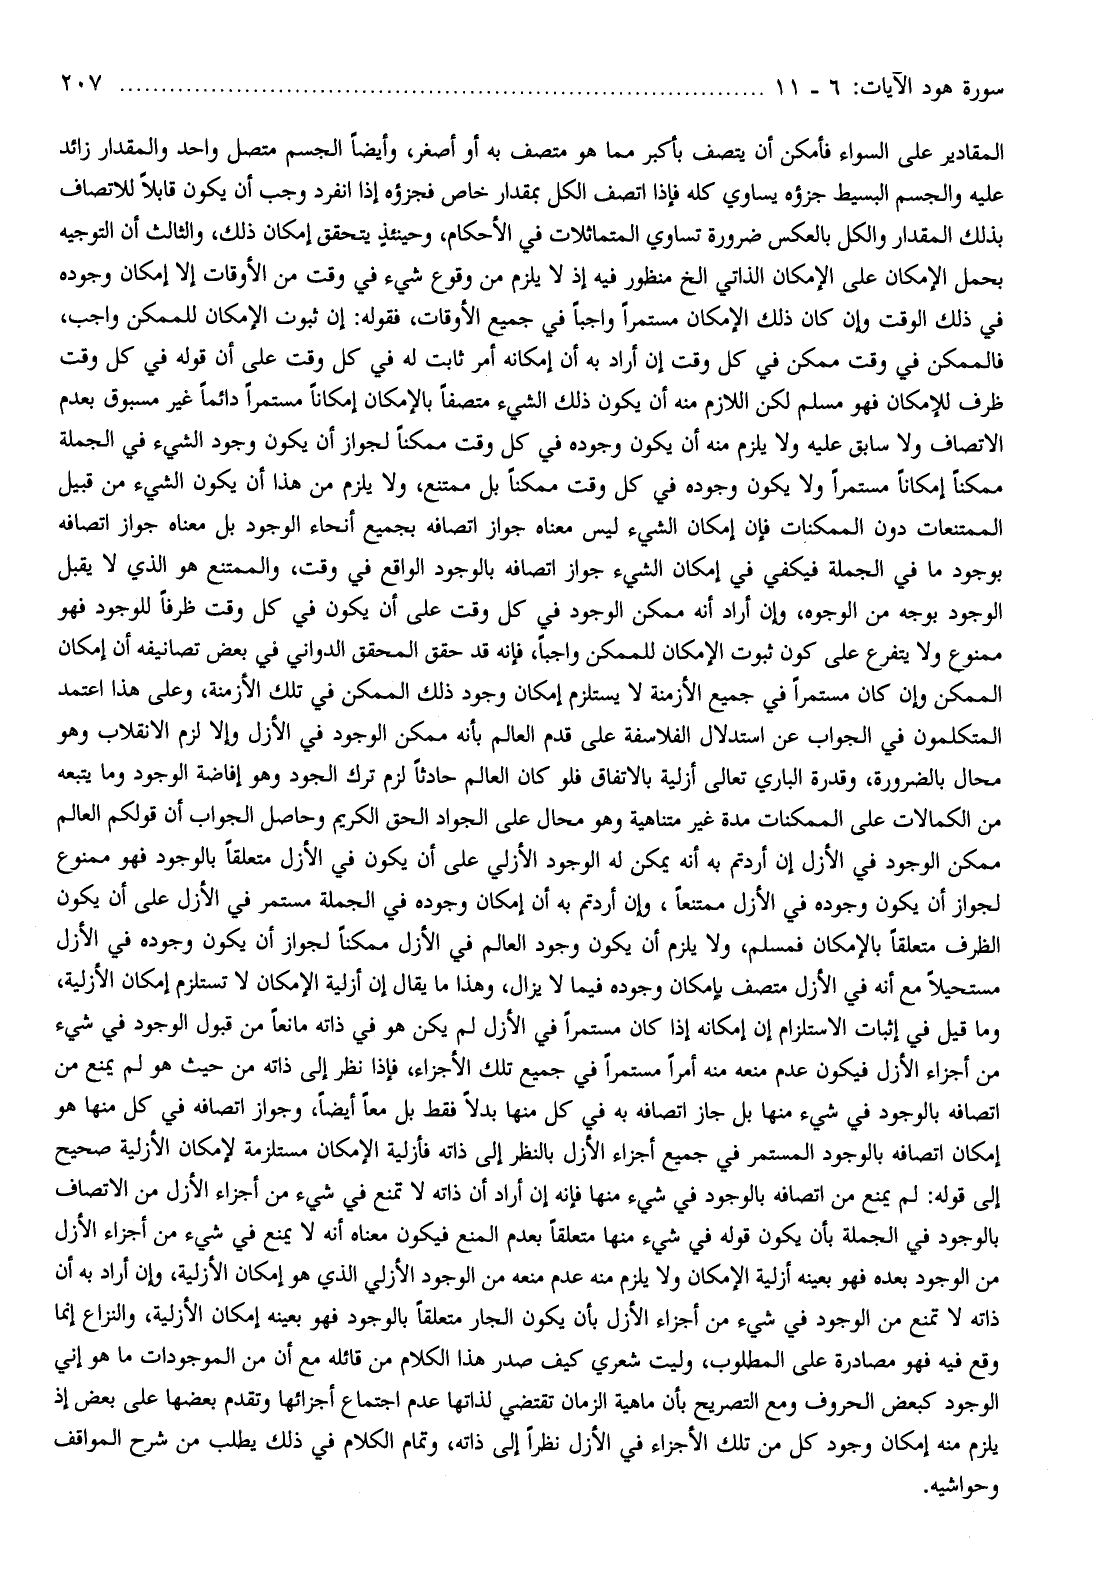 سورة هود الآيات: ٦ ـ ١١ ........................................................................... ٢٠٧
المقادير على السواء فأمكن أن يتصف بأكبر مما هو متصف به أو أصغر، وأيضاً الجسم متصل واحد والمقدار زائد
عليه والجسم البسيط جزؤه يساوي كله فإذا اتصف الكل بمقدار خاص فجزؤه إذا انفرد وجب أن يكون قابلاً للاتصاف
بذلك المقدار والكل بالعكس ضرورة تساوي المتماثلات في الأحكام، وحينئذٍ يتحقق إمكان ذلك، والثالث أن التوجيه
بحمل الإمكان على الإمكان الذاتي الخ منظور فيه إذ لا يلزم من وقوع شيء في وقت من الأوقات إلا إمكان وجوده
في ذلك الوقت وإن كان ذلك الإمكان مستمراً واجباً في جميع الأوقات، فقوله: إن ثبوت الإمكان للممكن واجب،
فالممكن في وقت ممكن في كل وقت إن أراد به أن إمكانه أمر ثابت له في كل وقت على أن قوله في كل وقت
ظرف للإمكان فهو مسلم لكن اللازم منه أن يكون ذلك الشيء متصفاً بالإمكان إمكاناً مستمراً دائماً غير مسبوق بعدم
الاتصاف ولا سابق عليه ولا يلزم منه أن يكون وجوده في كل وقت ممكناً لجواز أن يكون وجود الشيء في الجملة
ممكناً إمكاناً مستمراً ولا يكون وجوده في كل وقت ممكناً بل ممتنع، ولا يلزم من هذا أن يكون الشيء من قبيل
الممتنعات دون الممكنات فإن إمكان الشيء ليس معناه جواز اتصافه بجميع أنحاء الوجود بل معناه جواز اتصافه
بوجود ما في الجملة فيكفي في إمكان الشيء جواز اتصافه بالوجود الواقع في وقت، والممتنع هو الذي لا يقبل
الوجود بوجه من الوجوه، وإن أراد أنه ممكن الوجود في كل وقت على أن يكون في كل وقت ظرفاً للوجود فهو
ممنوع ولا يتفرع على كون ثبوت الإمكان للممكن واجباً، فإنه قد حقق المحقق الدواني في بعض تصانيفه أن إمكان
الممكن وإن كان مستمراً في جميع الأزمنة لا يستلزم إمكان وجود ذلك الممكن في تلك الأزمنة، وعلى هذا اعتمد
المتكلمون في الجواب عن استدلال الفلاسفة على قدم العالم بأنه ممكن الوجود في الأزل وإلا لزم الانقلاب وهو
محال بالضرورة، وقدرة الباري تعالى أزلية بالاتفاق فلو كان العالم حادثاً لزم ترك الجود وهو إفاضة الوجود وما يتبعه
من الكمالات على الممكنات مدة غير متناهية وهو محال على الجواد الحق الكريم وحاصل الجواب أن قولكم العالم
ممكن الوجود في الأزل إن أردتم به أنه يمكن له الوجود الأزلي على أن يكون في الأزل متعلقاً بالوجود فهو ممنوع
لجواز أن يكون وجوده في الأزل ممتنعاً ، وإن أردتم به أن إمكان وجوده في الجملة مستمر في الأزل على أن يكون
الظرف متعلقاً بالإمكان فمسلم، ولا يلزم أن يكون وجود العالم في الأزل ممكناً لجواز أن يكون وجوده في الأزل
مستحيلاً مع أنه في الأزل متصف بإمكان وجوده فيما لا يزال، وهذا ما يقال إن أزلية الإمكان لا تستلزم إمكان الأزلية،
وما قيل في إثبات الاستلزام إن إمكانه إذا كان مستمراً في الأزل لم يكن هو في ذاته مانعاً من قبول الوجود في شيء
من أجزاء الأزل فيكون عدم منعه منه أمراً مستمراً في جميع تلك الأجزاء، فإذا نظر إلى ذاته من حيث هو لم يمنع من
اتصافه بالوجود في شيء منها بل جاز اتصافه به في كل منها بدلاً فقط بل معاً أيضاً، وجواز اتصافه في كل منها هو
إمكان اتصافه بالوجود المستمر في جميع أجزاء الأزل بالنظر إلى ذاته فأزلية الإمكان مستلزمة لإمكان الأزلية صحيح
إلى قوله: لم يمنع من اتصافه بالوجود في شيء منها فإنه إن أراد أن ذاته لا تمنع في شيء من أجزاء الأزل من الاتصاف
بالوجود في الجملة بأن يكون قوله في شيء منها متعلقاً بعدم المنع فيكون معناه أنه لا يمنع في شيء من أجزاء الأزل
من الوجود بعده فهو بعينه أزلية الإمكان ولا يلزم منه عدم منعه من الوجود الأزلي الذي هو إمكان الأزلية، وإن أراد به أن
ذاته لا تمنع من الوجود في شيء من أجزاء الأزل بأن يكون الجار متعلقاً بالوجود فهو بعينه إمكان الأزلية، والنزاع إنما
وقع فيه فهو مصادرة على المطلوب، وليت شعري كيف صدر هذا الكلام من قائله مع أن من الموجودات ما هو إني
الوجود كبعض الحروف ومع التصريح بأن ماهية الزمان تقتضي لذاتها عدم اجتماع أجزائها وتقدم بعضها على بعض إذ
يلزم منه إمكان وجود كل من تلك الأجزاء في الأزل نظراً إلى ذاته، وتمام الكلام في ذلك يطلب من شرح المواقف
وحواشيه.